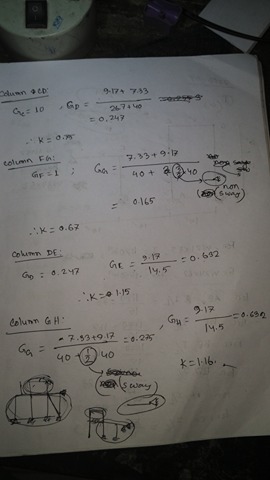 Column CD:
G_C = 10 , G_D = (9.17 + 7.33)/(26.7 + 40)
= 0.247
∴ K = 0.75
Column FG:
G_F = 1 ; G_G = (7.33 + 9.17)/(40 + (3/2) 40)
non
(sway)
= 0.165
∴ K = 0.67
Column DE:
G_D = 0.247 G_E = 9.17/14.5 = 0.632
∴ K = 1.15
Column GH:
G_G = (7.33 + 9.17)/(40 + (1/2) 40) = 0.275 , G_H = 9.17/14.5 = 0.632
(sway)
K = 1.16.